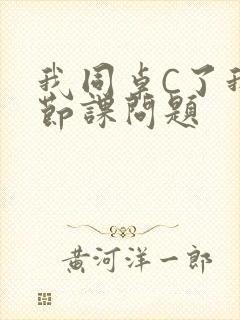 我同桌C了我
节課問題
黄河洋一郎